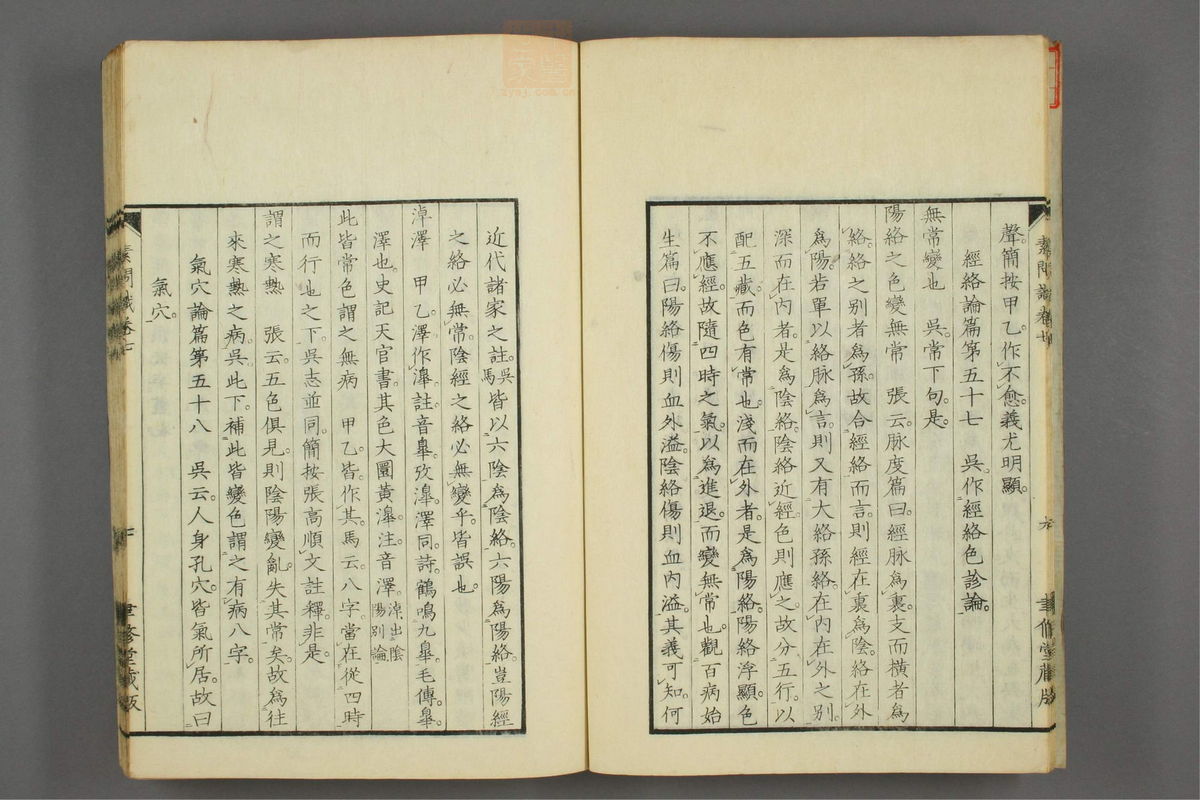 聲。簡按甲乙。作不愈。義尤明顯。
經絡論篇第五十七　吳。作經絡色診論。
無常變也　吳。常下句。是。
陽絡之色變無常　張云。脉度篇曰。經脉爲裏。支而橫者爲
絡。絡之別者爲孫。故合經絡而言。則經在裏爲陰。絡在外
爲陽。若單以絡脉爲言。則又有大絡孫絡。在內在外之別。
深而在內者。是爲陰絡。陰絡近經。色則應之。故分五行。以
配五藏。而色有常也。淺而在外者。是爲陽絡。陽絡浮顯。色
不應經。故隨四時之氣。以爲進退。而變無常也。觀百病始
生篇曰。陽絡傷則血外溢。陰絡傷則血內溢。其義可知。何
素問識卷七
聿修堂藏版
近代諸家之註。吳馬皆以六陰爲陰絡。六陽爲陽絡。豈陽經
之絡必無常。陰經之絡必無變乎。皆誤也。
淖澤　甲乙。澤作滜。註音臯。攷滜。澤同。詩。鶴鳴九臯。毛傳。臯。
澤也。史記天官書。其色大圜黃滜。注音澤。淖出陰陽別論
此皆常色謂之無病　甲乙。皆。作其。馬云。八字。當在從四時
而行也之下。吳志並同。簡按張高順文註釋。非是。
謂之寒熱　張云。五色俱見。則陰陽變亂。失其常矣。故爲往
來寒熱之病。吳此下。補此皆變色謂之有病八字。
氣穴論篇第五十八　吳云。人身孔穴。皆氣所居。故曰
氣穴。
素問識卷七
十
聿修堂藏版